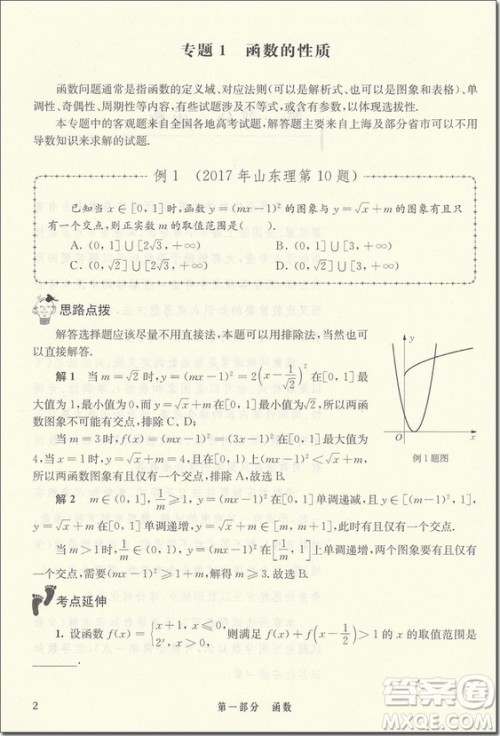 专题1 函数的性质
函数问题通常是指函数的定义域、对应法则(可以是解析式、也可以是图象和表格)、单
调性、奇偶性、周期性等内容,有些试题涉及不等式,或含有参数,以体现选拔性.
本专题中的客观题来自全国各地高考试题,解答题主要来自上海及部分省市可以不用
导数知识来求解的试题.
例1 (2017年山东理第10题)
已知当x∈[0,1]时,函数y=(mx-1)²的图象与y=√x+m的图象有且只
有一个交点,则正实数m的取值范围是( ).
A. (0,1]∪[2√3,+∞) B. (0,1]∪[3,+∞)
C. (0,√2]∪[2√3,+∞) D. (0,√2]∪[3,+∞)
思路点拨
解答选择题应该尽量不用直接法,本题可以用排除法,当然也
可以直接解.
解1 当m=√2时,y=(mx-1)²=2(x-1/√2)²在[0,1]上最
大值为1,最小值为0,y=√x+m在[0,1]上最小值为√2,所以两函
数图象不可能有交点,排除C、D;
当m=3时,f(x)=(mx-1)²=(3x-1)²,f(0)=1,f(1)=4,
所以两函数图象有且仅有一个交点,排除A,故选B.
解2 m∈(0,1],1/m≥1,y=(mx-1)²在[0,1]单调递减,且y∈[(m-1)²,1],
y=√x+m在[0,1]单调递增,y∈[m,m+1],有且仅有一个交点.
当m>1时,y=(mx-1)²在[1/m,1]单调递增,两个图象要有且仅有
一个交点,需要(m-1)²≥m+1,解得m≥3.故选B.
y
O
x
例1题图
考点延伸
1. 设函数f(x)={x+1, x≤0, 2ˣ, x>0, 则满足f(x)+f(x-1/2)>1的x的取值范围是
______.
2
第一部分 函数
答案圈
MXQE.COM